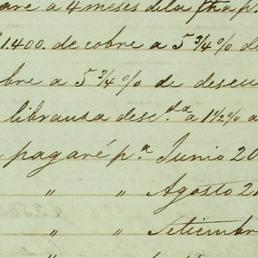 are a 4 meses dela fha p.
1.400. de cobre a 5 3/4 % de
bre a 5 3/4 % de descu
libransa desc.ta a 1 1/2 % a
pagaré p.a Junio 20
" " Agosto 2
" " Setiembre